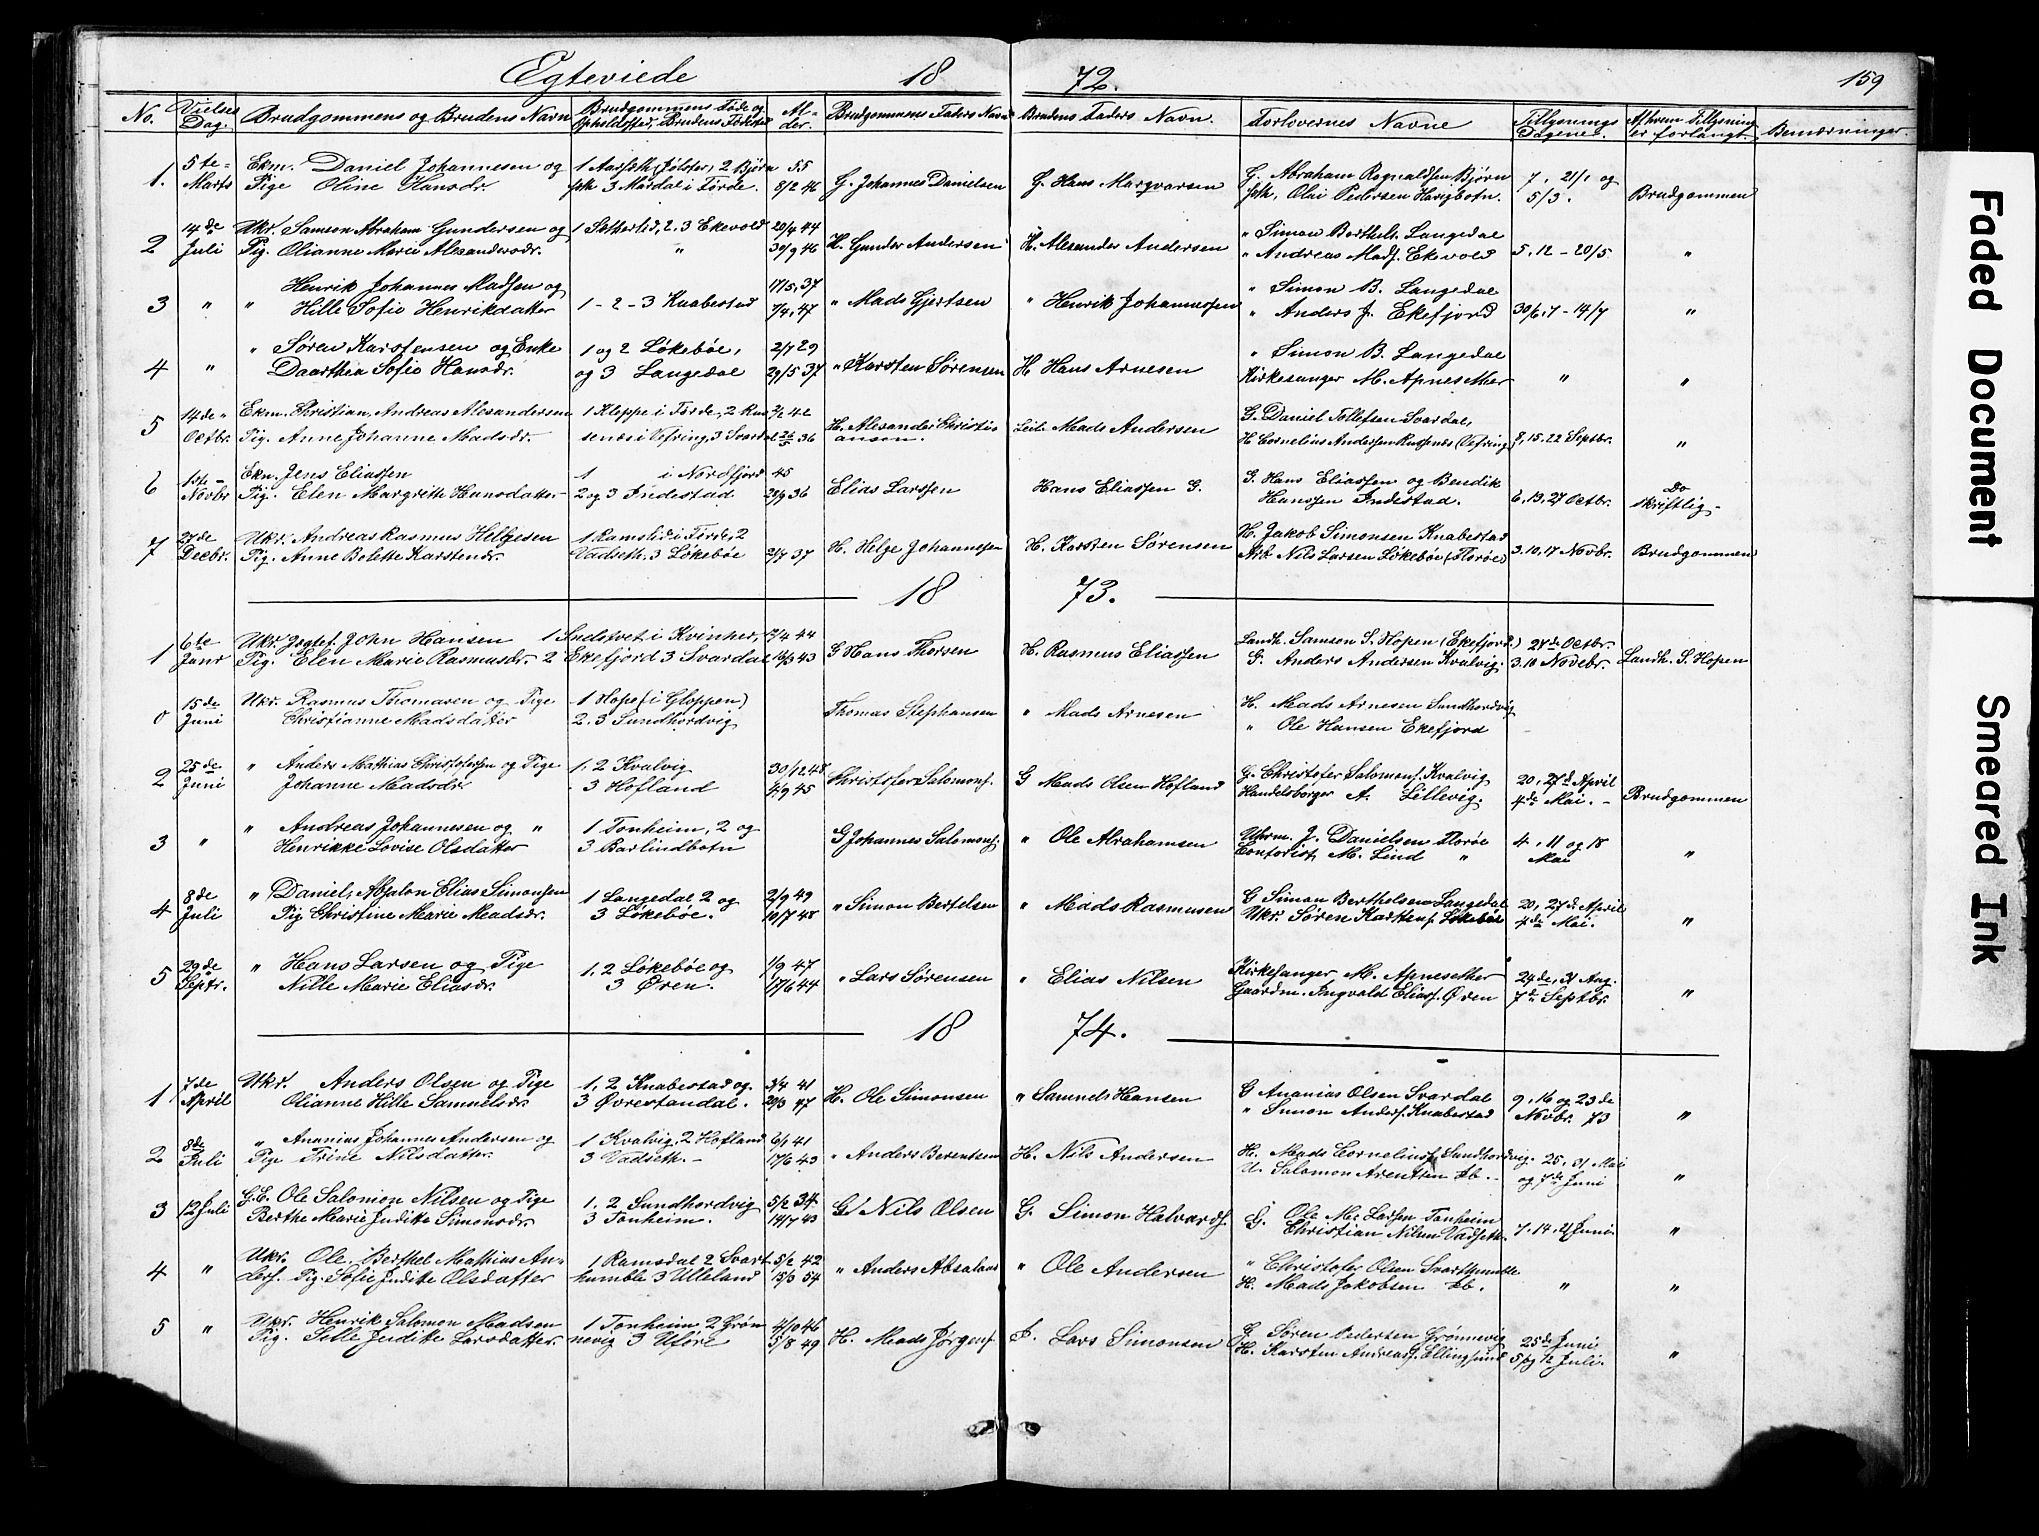 Egteviede 18 72. 159
No. Vielses Dag. Brudgommens og Brudens Navn Brudgommens Føde og Opholdssted, Brudens Fødested Al-der. Brudgommens Faders Navn Brudens Faders Navn. Forlovernes Navne Tillysnings Dagene. Af hvem Tillysning er forlangt. Bemærninger.
1. 5te Marts Ekm. Daniel Johannesen og Pige Oline Hansdr. 1 Aarseth (Jølster, 2 Bjørn seth 3 Mardal i Førde. 55 8/2 46 G. Johannes Danielsen G. Hans Marqvarsen G. Abraham Ragnaldsen Bjørn seth, Olai Pedersen Havigbotn. 7, 21/1 og 5/3. Brudgommen
2 14de Juli Ukr. Samson Abraham Gundersen og Pig. Olianne Marie Alexandersdr. 1 Sætherlid, 2, 3 Ekevold " 20/4 44 30/9 46 H. Gunder Andersen H. Alexander Andersen " Simon Berthels. Langedal " Andreas Madss. Ekevold 5, 12 - 20/5. "
3 " " Henrik Johannes Madssen og Hille Sofie Henrikdatter 1 - 2 - 3 Knabestad 17/5 37 7/4 47 " Mads Gjertsen " Henrik Johannessen " Simon B. Langedal " Anders J. Ekefjord 30/6, 7 - 14/7 "
4 " " Søren Karstensen og Enke Daarthea Sofie Hansdr. 1 og 2 Løkebøe, og 3 Langedal 2/7 29 29/5 37 " Karsten Sørensen H. Hans Arnesen " Simon B. Langedal Kirkesanger M. Apnesether " "
5 14de " Octbr. Ekm. Christian Andreas Alexandersen Pig. Anne Johanne Madsdr. 1 Kleppe i Førde, 2 Russenæs i Vefring, 3 Svardal 2/2 42 26/5 36 H. Alexander Christiansen. Leil. Mads Andersen G. Daniel Tollefsen Svardal, H Cornelius Andersen Russnæs (Vefring) 8, 15, 22 Septbr. "
6 1ste Novbr Ekm. Jens Eliassen Pig. Elen Margrethe Hansdatter 1 i Nordfjord 2 og 3 Indestad 45 28/9 36 Elias Larssen Hans Eliassen G. G. Hans Eliassen og Bendik Hanssen Indestad. 6, 13, 27 Octbr. Do skriftlig
7 27de Decbr. Ukr. Andreas Rasmus Helgesen Pig. Anne Bolette Karstendr. 1 Ramslid i Førde, 2 Vadseth, 3 Løkebøe 2/7 37 H. Helge Johannessen H. Karsten Sørensen H. Jakob Simonsen Knabestad Arb. Nils Larsen Løkebøe (Florøe) 3, 10, 17 Novbr. Brudgommen
18 73.
1 6te Janr Ukr. Jegtef. John Hansen Pig. Elen Marie Rasmusdr. 1 Sndstvet i Kvinher, 2 Ekefjord 3 Svardal 7/4 44 18/3 43 G Hans Thorsen H. Rasmus Eliassen Landh. Samson S. Hopen (Ekefjord) G. Anders Andersen Kvalvig. 27de Octbr. 3, 10 Novebr. Landh. S. Hopen
0 15de Juni Ukr. Rasmus Thomasen og Pige Christianne Madsdatter 1 Hope (i Gloppen) 2, 3 Sundhordvig Thomas Stephansen " Mads Arnesen H. Mads Arnesen Sundhordvig " Ole Hansen Ekefjord
2 25de Juni " Anders Mathias Christofersen og Pige Johanne Madsdr 1, 2 Kvalvig - 3 Hofland 30/12 48 4/9 45 Christofer Salomons. G Mads Olsen Hofland G. Christofer Salomons. Kvalvig Handelsborger A. Lillevig. 20, 27de April 4de Mai. - Brudgommen
3 " " Andreas Johannesen og " Henrikke Lovise Olsdatter 1 Tonheim, 2 og 3 Barlindbotn G Johannes Salomons. " Ole Abrahamsen Uhrm. J. Danielsen Florøe Contorist, M. Lind " 4, 11 og 18 Mai "
4 8de Juli " Daniel Absalon Elias Simonsen Pig. Christine Marie Madsdr. 1 Langedal 2 og 3 Løkebøe. 2/9 49 10/7 48 " Simon Bertelsen " Mads Rasmusen G Simon Berthelsen Langedal Ukr. Søren Karstens. Løkebøe 20, 27de April 4de Mai. "
5 29de Septr. " Hans Larsen og Pige Nille Marie Eliasdr. 1, 2 Løkebøe og 3 Øren. 1/9 47 17/6 44 " Lars Sørensen " Elias Nilsen Kirkesanger M. Apnesether Gaardm. Ingvald Elias. Øren 24de, 31 Aug. 7de Septbr. "
18 74.
1 7de April Ukr. Anders Olsen og Pige Olianne Hille Samuelsdr. 1, 2 Knabestad og 3 Øvrestandal. 3/4 41 20/3 47 H. Ole Simonsen " Samuel Hansen G Ananias Olsen Svardal " Simon Anders. Knabestad 9, 16 og 23de Novbr. 73 "
2 8de Juli " Ananias Johannes Andersen og Pige Trine Nilsdatter. 1 Kvalvig, 2 Hofland 3 Vadseth. 6/1 41 17/6 43 " Anders Berentsen H. Nils Andersen H. Mads Cornelius. Sundhordvig U. Salomon Arentsen Ib. 25, 31 Mai og 7de Juni "
3 12 Juli G.E. Ole Salomon Nilsen og Pige Berthe Marie Judikke Simonsdr. 1, 2 Sundhordvig 3 Tonheim. 5/2 34 14/7 43 G Nils Olsen G. Simon Halvards. G. Ole M. Larsen Tonheim Christian Nilsen Vadseth. 7, 14, 21 Juni. "
4 " Ukr. Ole Berthel Mathias Anders. Pig. Sofie Judikke Olsdatter 1 Ramsdal 2 Svarthumble 3 Ulleland 5/2 42 13/3 54 " Anders Absalons " Ole Andersen " Christofer Olsen Svarthumble H. Mads Jakobsen Ib. " "
5 " Ukr. Henrik Salomon Madsen Pig. Sille Judikke Larsdatter. 1 Tonheim 2 Grønnevig 3 Uføre 4/10 46 3/8 49 H. Mads Jørgens. J. Lars Simonsen G. Søren Pedersen Grønnevig H. Karsten Andreas. Ellingsund 25de Juni 5 og 12 Juli. "
Faded Document
Smeared Ink